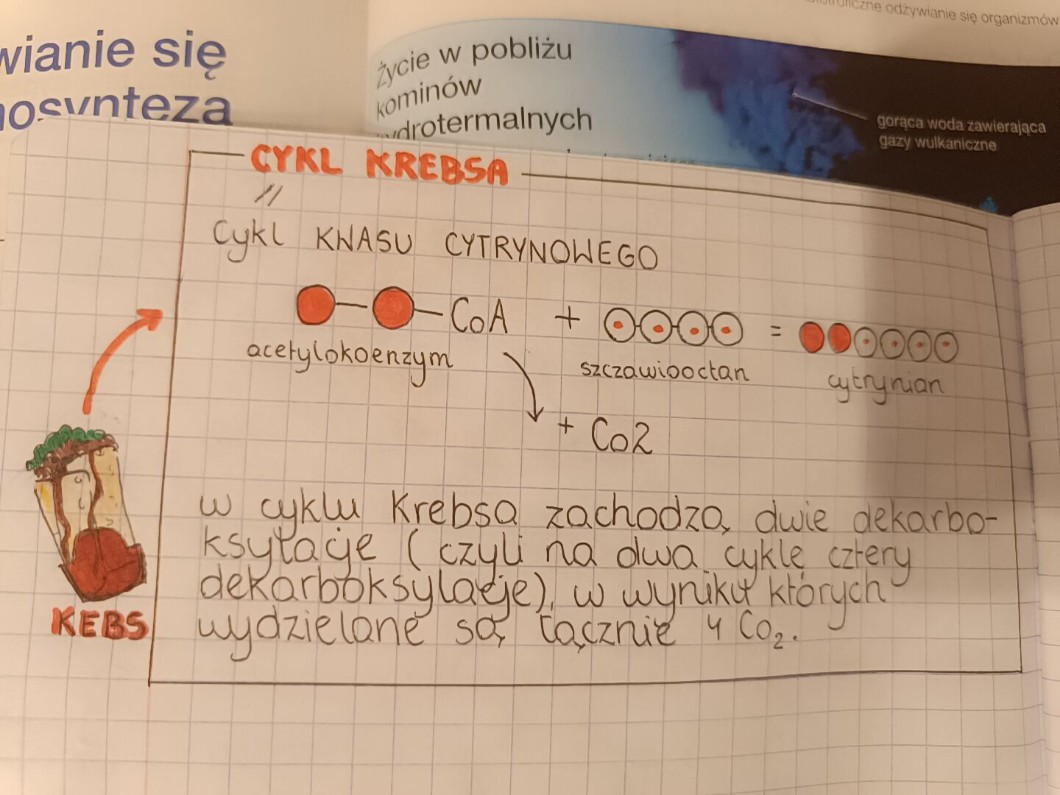 wianie się
osynteza
odżywianie się organizmów
Życie w pobliżu
kominów
drotermalnych
gorąca woda zawierająca
gazy wulkaniczne
CYKL KREBSA
//
Cykl KWASU CYTRYNOWEGO
CoA + =
acetylokoenzym szczawiooctan cytrynian
+ Co2
w cyklu Krebsa zachodzą dwie dekarbo-
ksylacje (czyli na dwa cykle cztery
dekarboksylacje), w wyniku których
wydzielane są łącznie 4 CO₂.
KEBS